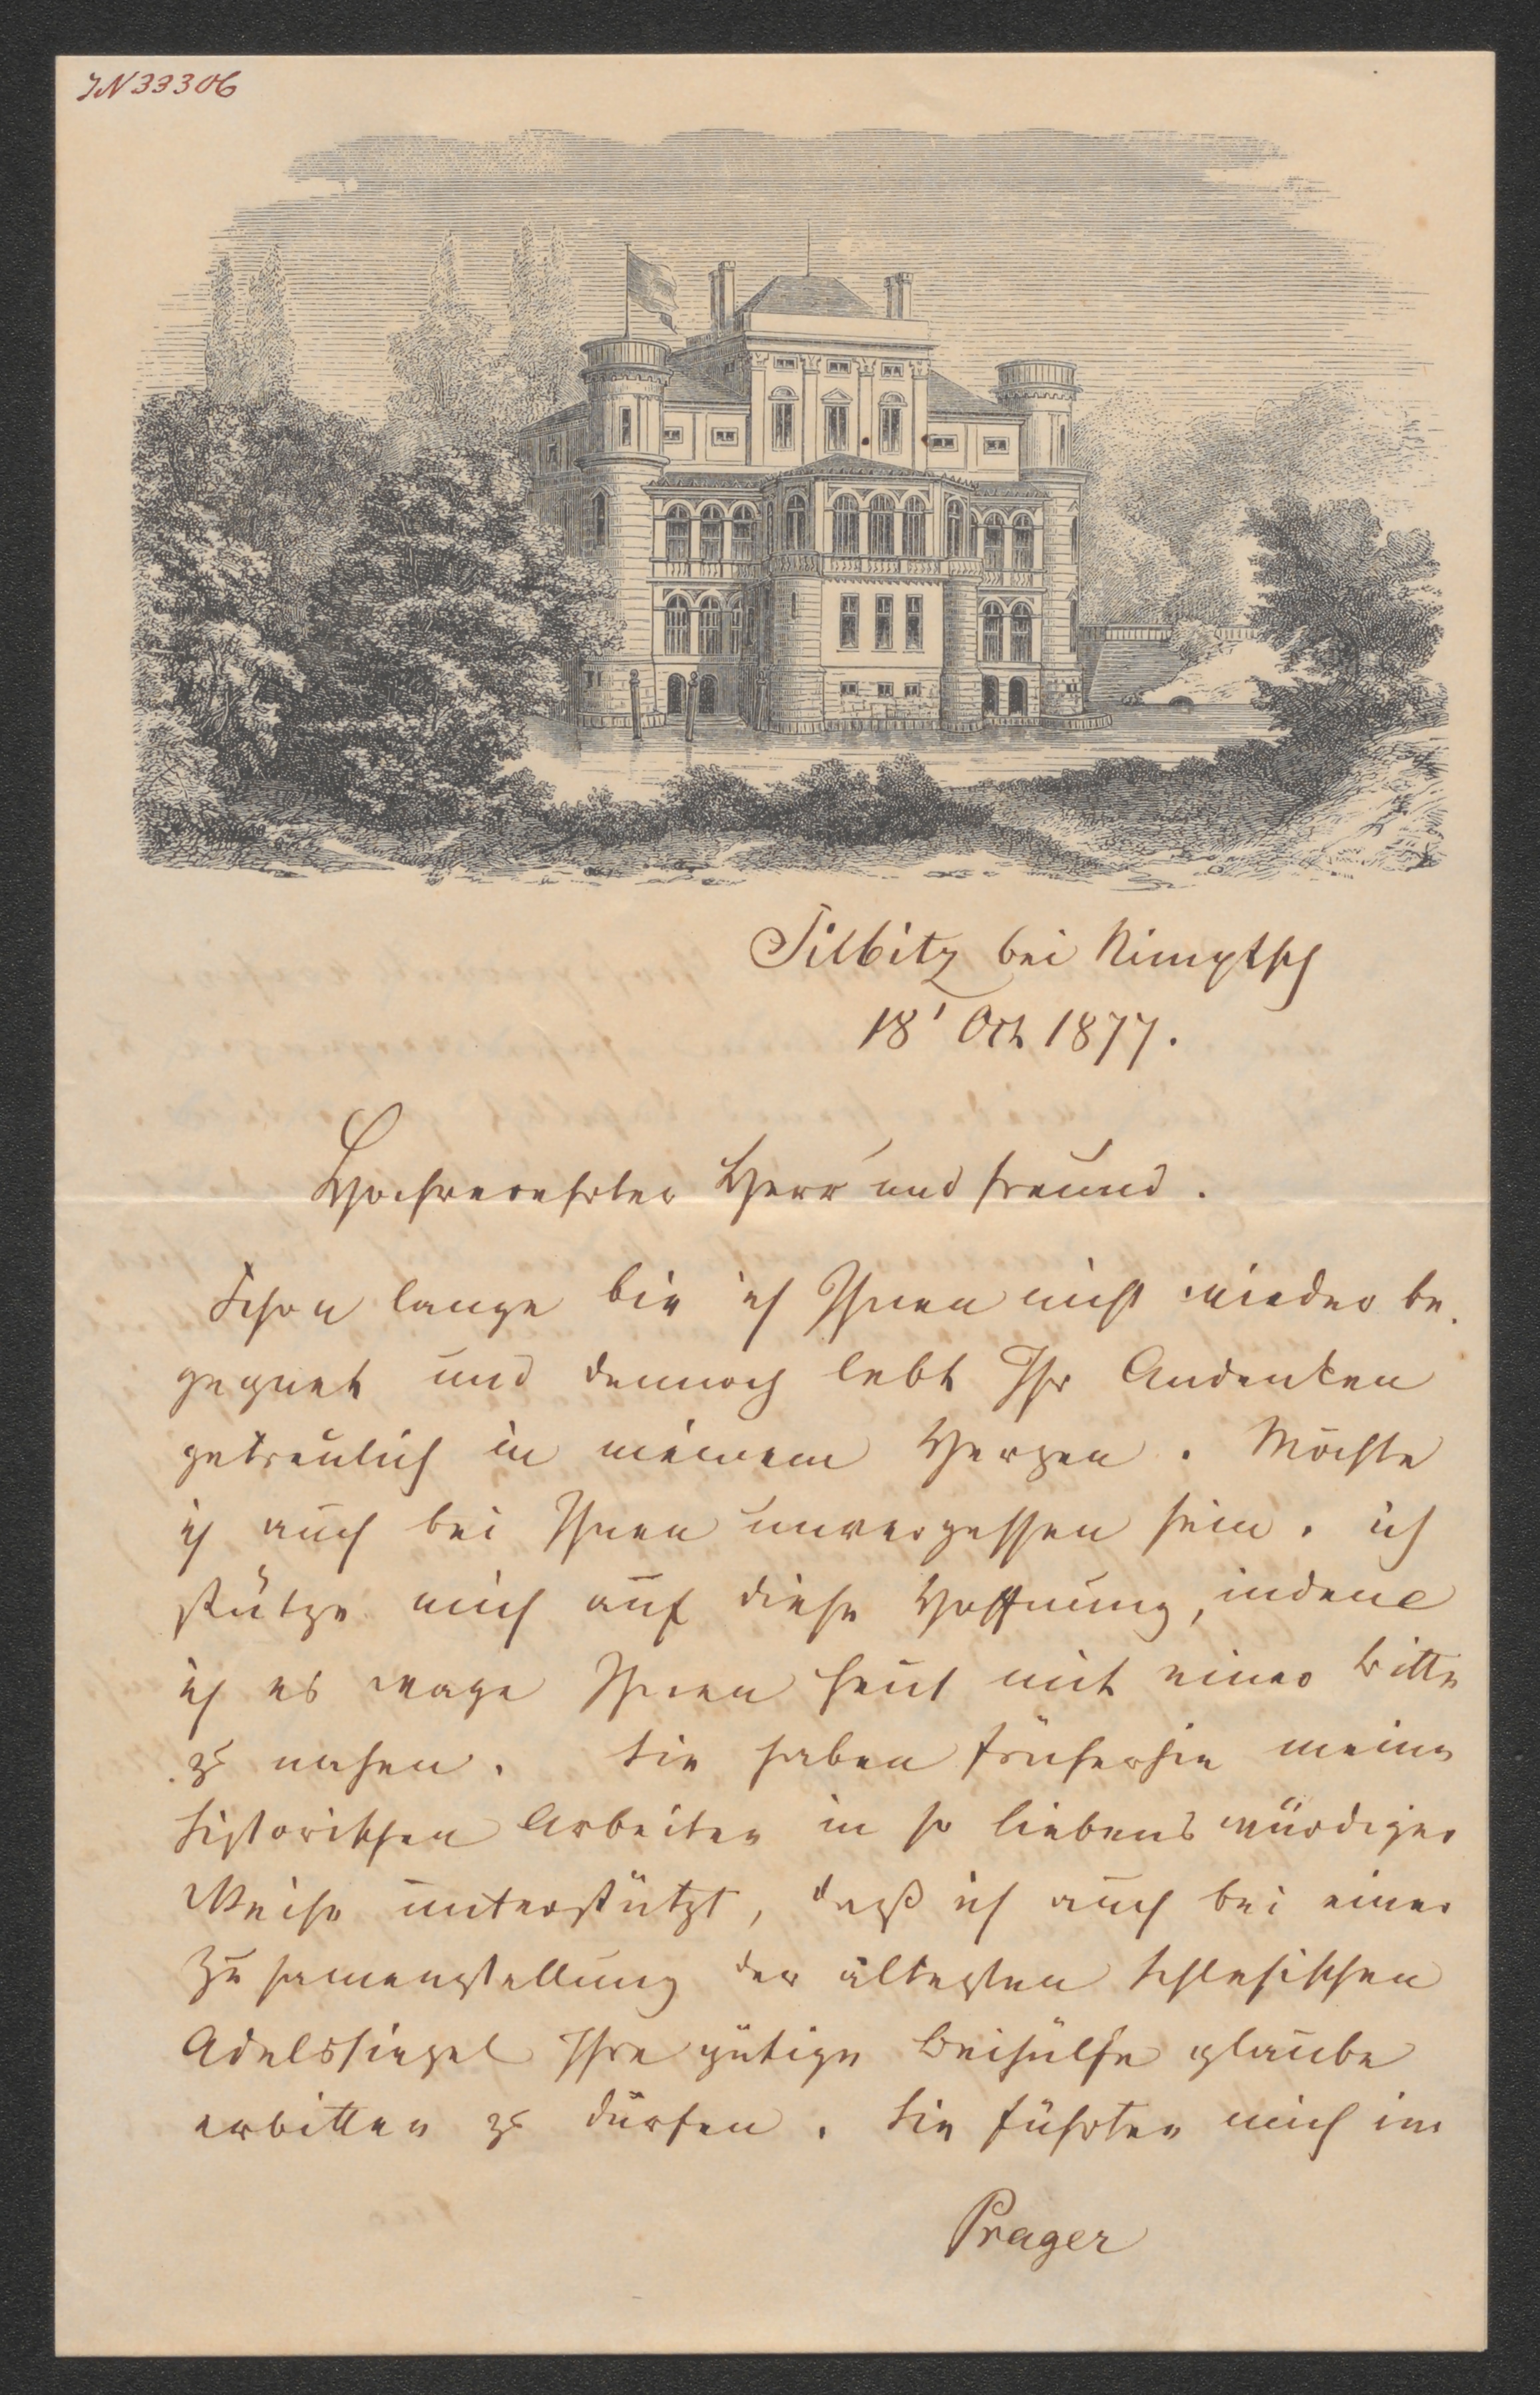 IN 33306
Tilbitz bei Nimptsch
18' Oct 1877.
Hochverehrter Herr und Freund.
Schon lange bin ich Ihnen nicht wieder be-
gegnet und dennoch lebt Ihr Andenken
getreulich in meinem Herzen. Möchte
ich auch bei Ihnen unvergessen sein. ich
stütze mich auf diese Hoffnung, indem
ich es wage Ihnen heut mit einer Bitte
zu nahen. Sie haben früherhin meine
historischen Arbeiten in so liebenswürdiger
Weise unterstützt, daß ich auch bei einer
Zusamenstellung der ältesten schlesischen
Adelssiegel Ihre gütige Beihülfe glaube
erbitten zu dürfen. Sie führten mich im
Prager